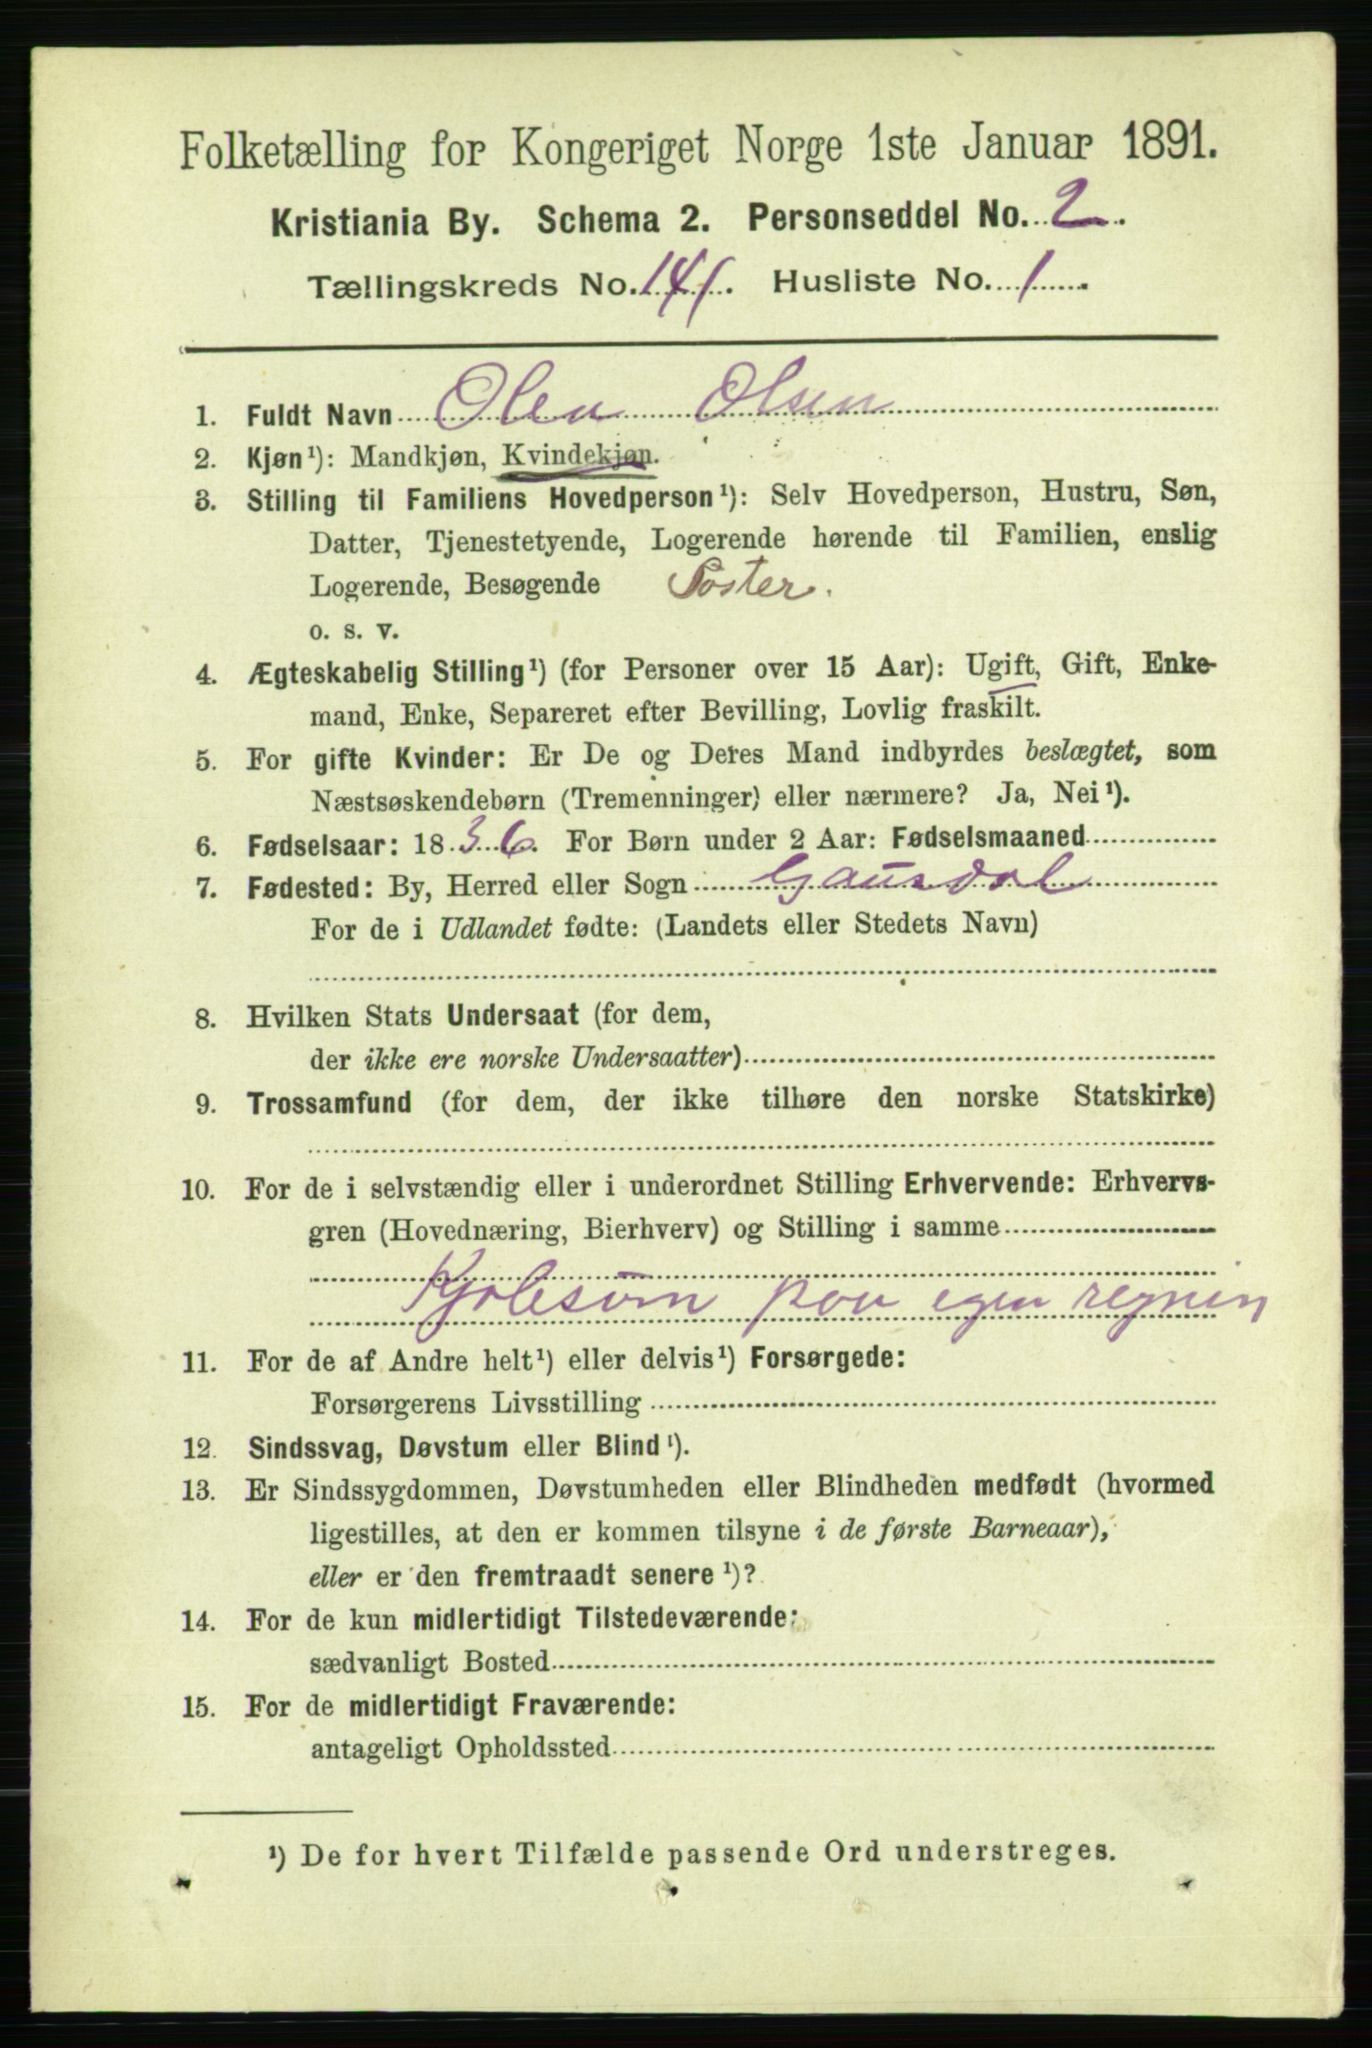 Folketælling for Kongeriget Norge 1ste Januar 1891.
Kristiania By. Schema 2. Personseddel No. 2.
Tællingskreds No. 141. Husliste No. 1.
1. Fuldt Navn Olea Olsen
2. Kjøn¹): Mandkjøn, Kvindekjøn.
3. Stilling til Familiens Hovedperson¹): Selv Hovedperson, Hustru, Søn,
Datter, Tjenestetyende, Logerende hørende til Familien, enslig
Logerende, Besøgende Søster.
o. s. v.
4. Ægteskabelig Stilling¹) (for Personer over 15 Aar): Ugift, Gift, Enke-
mand, Enke, Separeret efter Bevilling, Lovlig fraskilt.
5. For gifte Kvinder: Er De og Deres Mand indbyrdes beslægtet, som
Næstsøskendebørn (Tremenninger) eller nærmere? Ja, Nei¹).
6. Fødselsaar: 1836. For Børn under 2 Aar: Fødselsmaaned
7. Fødested: By, Herred eller Sogn Gausdal
For de i Udlandet fødte: (Landets eller Stedets Navn)
8. Hvilken Stats Undersaat (for dem,
der ikke ere norske Undersaatter)
9. Trossamfund (for dem, der ikke tilhøre den norske Statskirke)
10. For de i selvstændig eller i underordnet Stilling Erhvervende: Erhvervs-
gren (Hovednæring, Bierhverv) og Stilling i samme
Kjolesøm paa egen regnin
11. For de af Andre helt¹) eller delvis¹) Forsørgede:
Forsørgerens Livsstilling
12. Sindssvag, Døvstum eller Blind¹).
13. Er Sindssygdommen, Døvstumheden eller Blindheden medfødt (hvormed
ligestilles, at den er kommen tilsyne i de første Barneaar),
eller er den fremtraadt senere¹)?
14. For de kun midlertidigt Tilstedeværende:
sædvanligt Bosted
15. For de midlertidigt Fraværende:
antageligt Opholdssted
¹) De for hvert Tilfælde passende Ord understreges.